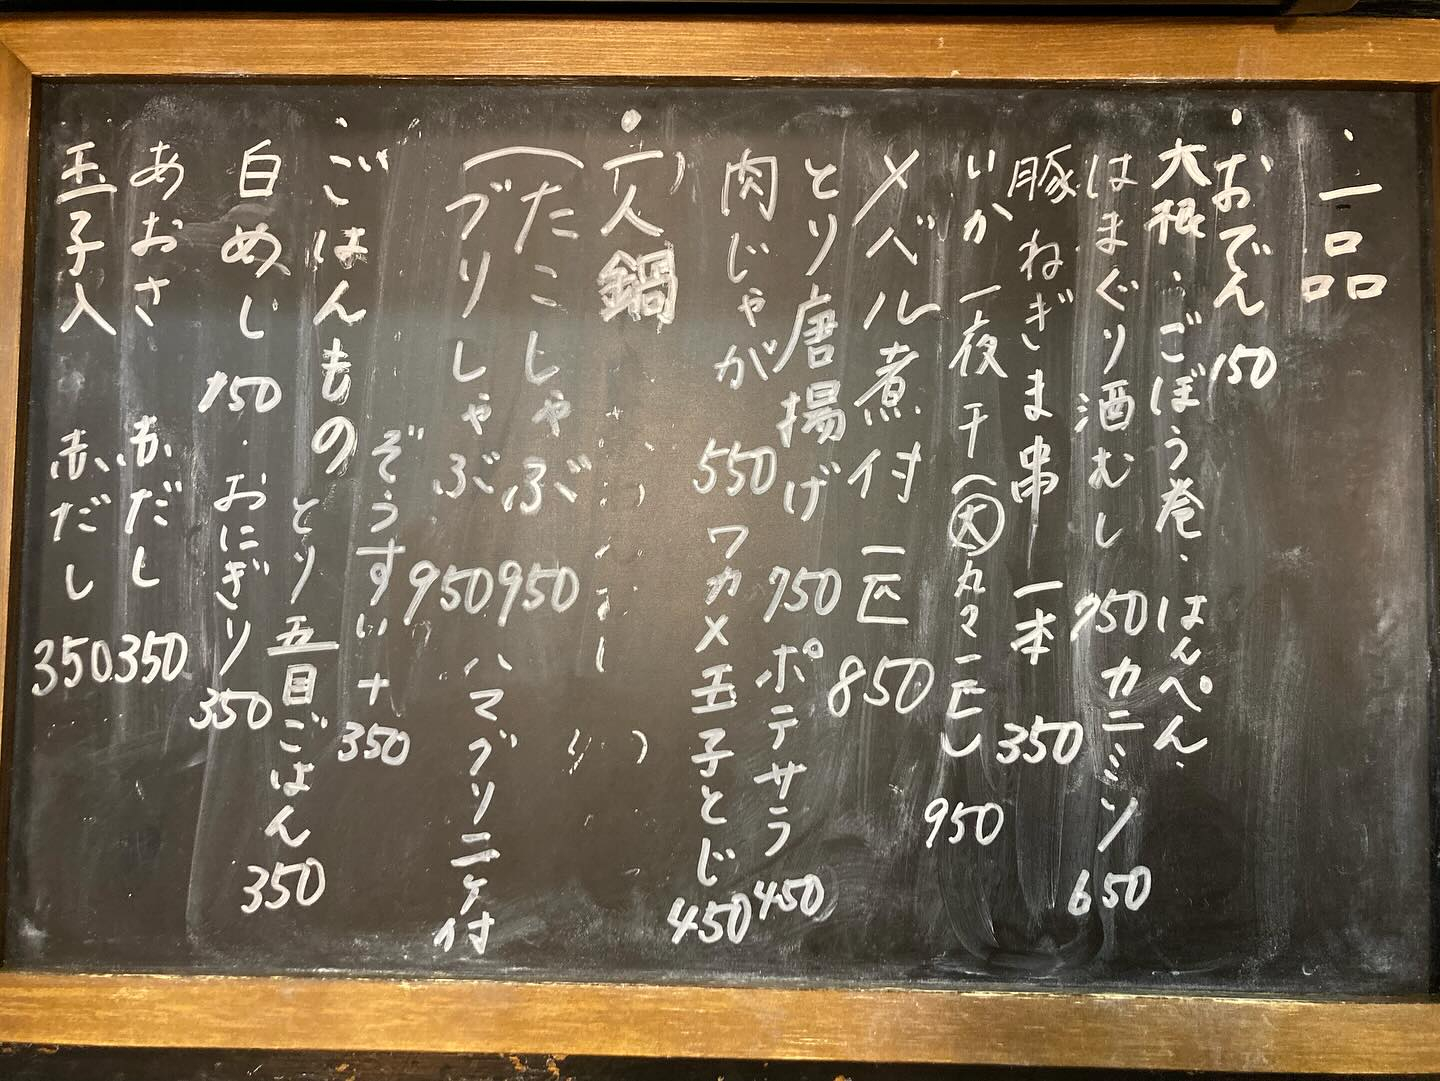 ・一品
・おでん 150
大根・ごぼう巻・はんぺん・
はまぐり酒むし 750 カニミソ 650
豚ねぎま串 一本 350
いか一夜干(大)丸々一匹 950
メバル煮付 一匹 850
とり唐揚げ 750 ポテサラ 450
肉じゃが 550 ワカメ玉子とじ 450
・一人鍋
(たこしゃぶ 950
ブリしゃぶ 950 ハマグリ二ヶ付
・ごはんもの ぞうすい 350
とり五目ごはん 350
白めし 150・おにぎり 350
あおさ 赤だし 350
玉子入 赤だし 350